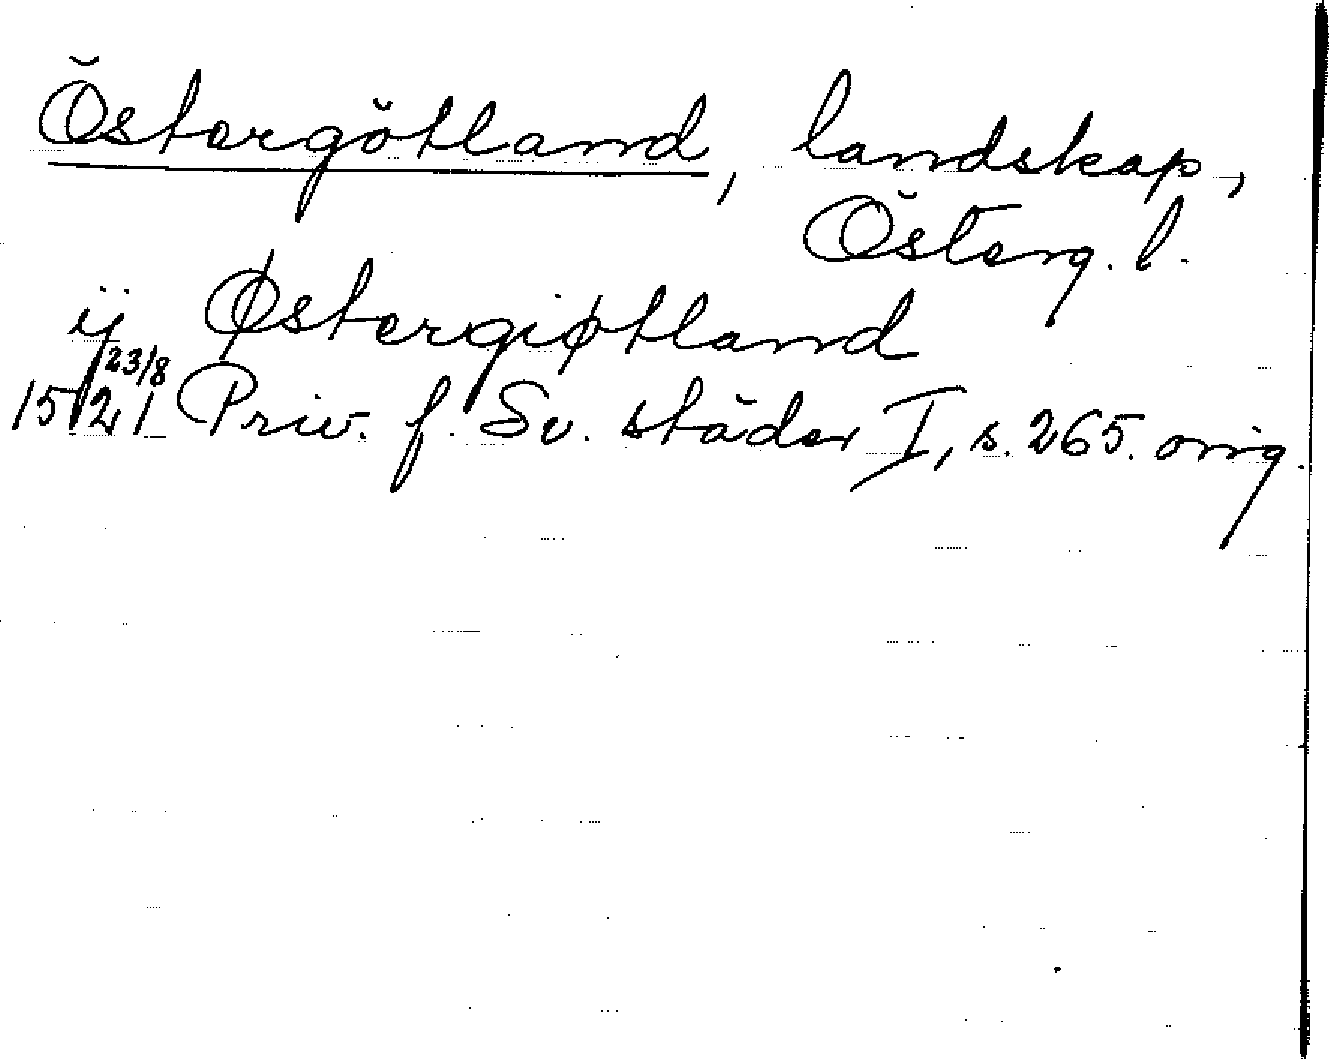 Östergötland, landskap,
Österg. l.
ij Østergiøtland
1521 23/8 Priv. f. Sv. städer I, s. 265. orig.